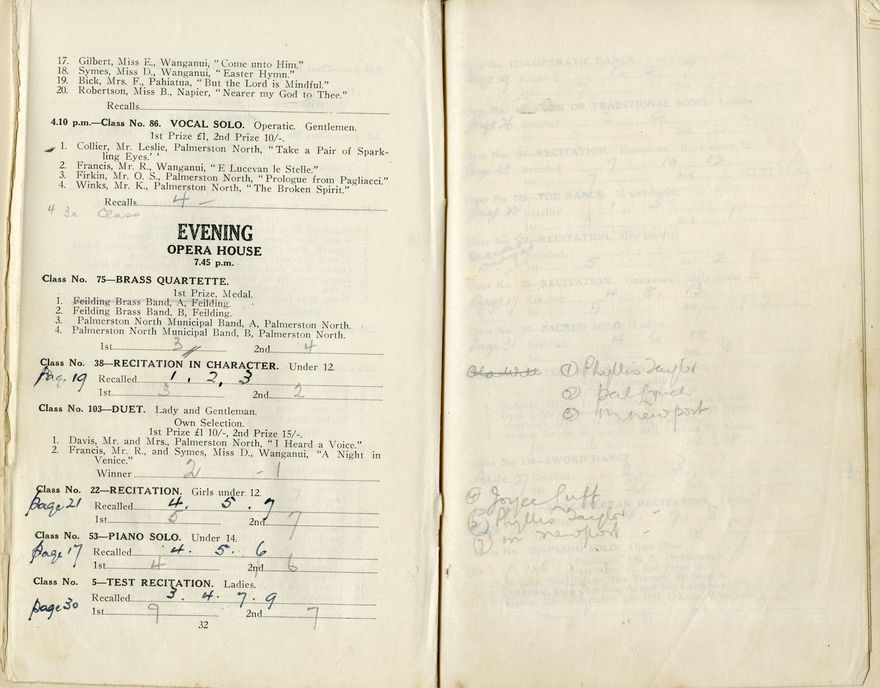 17. Gilbert, Miss E., Wanganui, "Come unto Him."
18. Symes, Miss D., Wanganui, "Easter Hymn."
19. Bick, Mrs. F., Pahiatua, "But the Lord is Mindful."
20. Robertson, Miss B., Napier, "Nearer my God to Thee."
Recalls
4.10 p.m.—Class No. 86. VOCAL SOLO. Operatic. Gentlemen.
1st Prize £1, 2nd Prize 10/-.
1. Collier, Mr. Leslie, Palmerston North, "Take a Pair of Spark-
ling Eyes.'’
2. Francis, Mr. R., Wanganui, "E Lucevan le Stelle."
3. Firkin, Mr. O. S., Palmerston North, "Prologue from Pagliacci."
4. Winks, Mr. K., Palmerston North, "The Broken Spirit."
Recalls 4 —
4.30 Class
EVENING
OPERA HOUSE
7.45 p.m.
Class No. 75—BRASS QUARTETTE.
1st Prize, Medal.
1. Feilding Brass Band, A, Feilding.
2. Feilding Brass Band, B, Feilding.
3. Palmerston North Municipal Band, A, Palmerston North.
4. Palmerston North Municipal Band, B, Palmerston North.
1st 3 2nd 4
Class No. 38—RECITATION IN CHARACTER. Under 12.
Page 19 Recalled 1, 2, 3
1st 3 2nd 2
Class No. 103—DUET. Lady and Gentleman.
Own Selection.
1st Prize £1 10/-, 2nd Prize 15/-.
1. Davis, Mr. and Mrs., Palmerston North, "I Heard a Voice."
2. Francis, Mr. R., and Symes, Miss D., Wanganui, "A Night in
Venice."
Winner 2 - 1
Class No. 22—RECITATION. Girls under 12.
page 21 Recalled 4. 5. 7
1st 5 2nd 7
Class No. 53—PIANO SOLO. Under 14.
page 17 Recalled 4. 5. 6
1st 4 2nd 6
Class No. 5—TEST RECITATION. Ladies.
page 30 Recalled 3. 4. 7. 9
1st 9 2nd 7
32
① Phyllis Taylor
② Pat Lynch
③ M Newport
④ Joyce Suff
⑤ Phyllis Taylor -
⑦ M Newport -